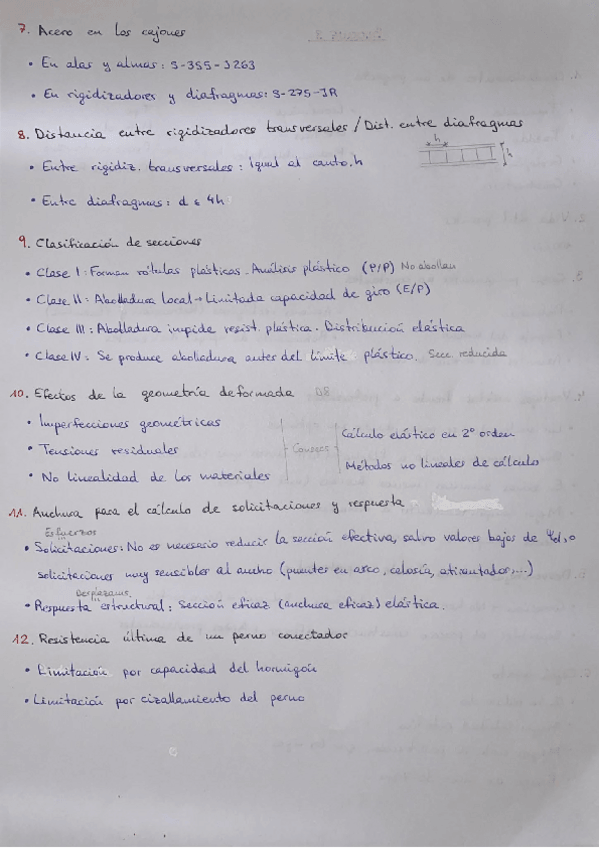 7. Acero en los cajones
• En alas y almas: S-355-J2G3
• En rigidizadores y diafragmas: S-275-JR
8. Distancia entre rigidizadores transversales / Dist. entre diafragmas
h
h
• Entre rigidiz. transversales: igual al canto, h
• Entre diafragmas: d ≤ 4h
9. Clasificación de secciones
• Clase I: Forman rótulas plásticas. Análisis plástico (P/P) No abollan
• Clase II: Abolladura local → Limitada capacidad de giro (E/P)
• Clase III: Abolladura impide resist. plástica. Distribución elástica
• Clase IV: Se produce abolladura antes del límite plástico. Secc. reducida
10. Efectos de la geometría deformada
• Imperfecciones geométricas
• Tensiones residuales
• No linealidad de los materiales
Causas
Cálculo elástico en 2º orden
Métodos no lineales de cálculo
11. Anchura para el cálculo de solicitaciones y respuesta
Esfuerzos
• Solicitaciones: No es necesario reducir la sección efectiva, salvo valores bajos de o
solicitaciones muy sensibles al ancho (puentes en arco, celosía, atirantados,...)
Desplazams.
• Respuesta estructural: Sección eficaz (anchura eficaz) elástica.
12. Resistencia última de un perno conectador
• Limitación por capacidad del hormigón
• Limitación por cizallamiento del perno